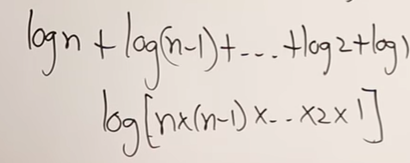 logn + log(n-1)+ --- +log2+log1
log[nx(n-1) x -- x2x1]